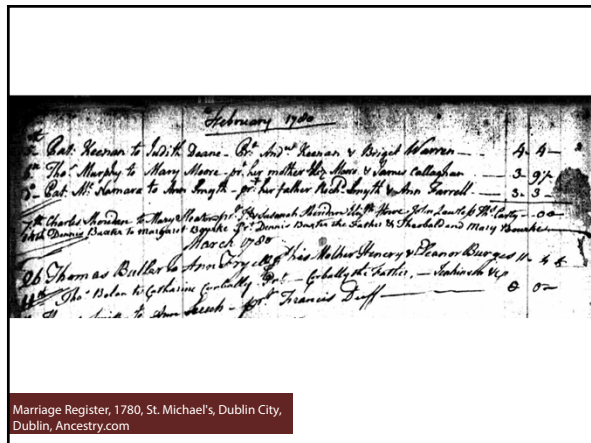 February 1780
Pat. Keenan to Judith Deane - Prt. Andw Keenan & Brigit Warren 4 - 4 -
Thos Murphy to Mary Moore - pr. her mother & James Callaghan - 3 -
Pat. Mc. Namara to Ann Smyth - pr. her father Richd. Smyth & Ann Farrell - 3 - 3
Charles to Mary pr. & Susanah Howe John Lawless Thos - 0 0
Dennis Baxter to Margaret Bourke Prt Dennis Baxter the Father & Theobald and Mary Bourke
March 1780
26 Thomas Butler to Ann Fry his Mother Henery & Eleanor Burges
Thos Bolan to Catharine Corbally Prt - Corbally the Father, -
to Ann - prt Francis Duff
Marriage Register, 1780, St. Michael's, Dublin City,
Dublin, Ancestry.com